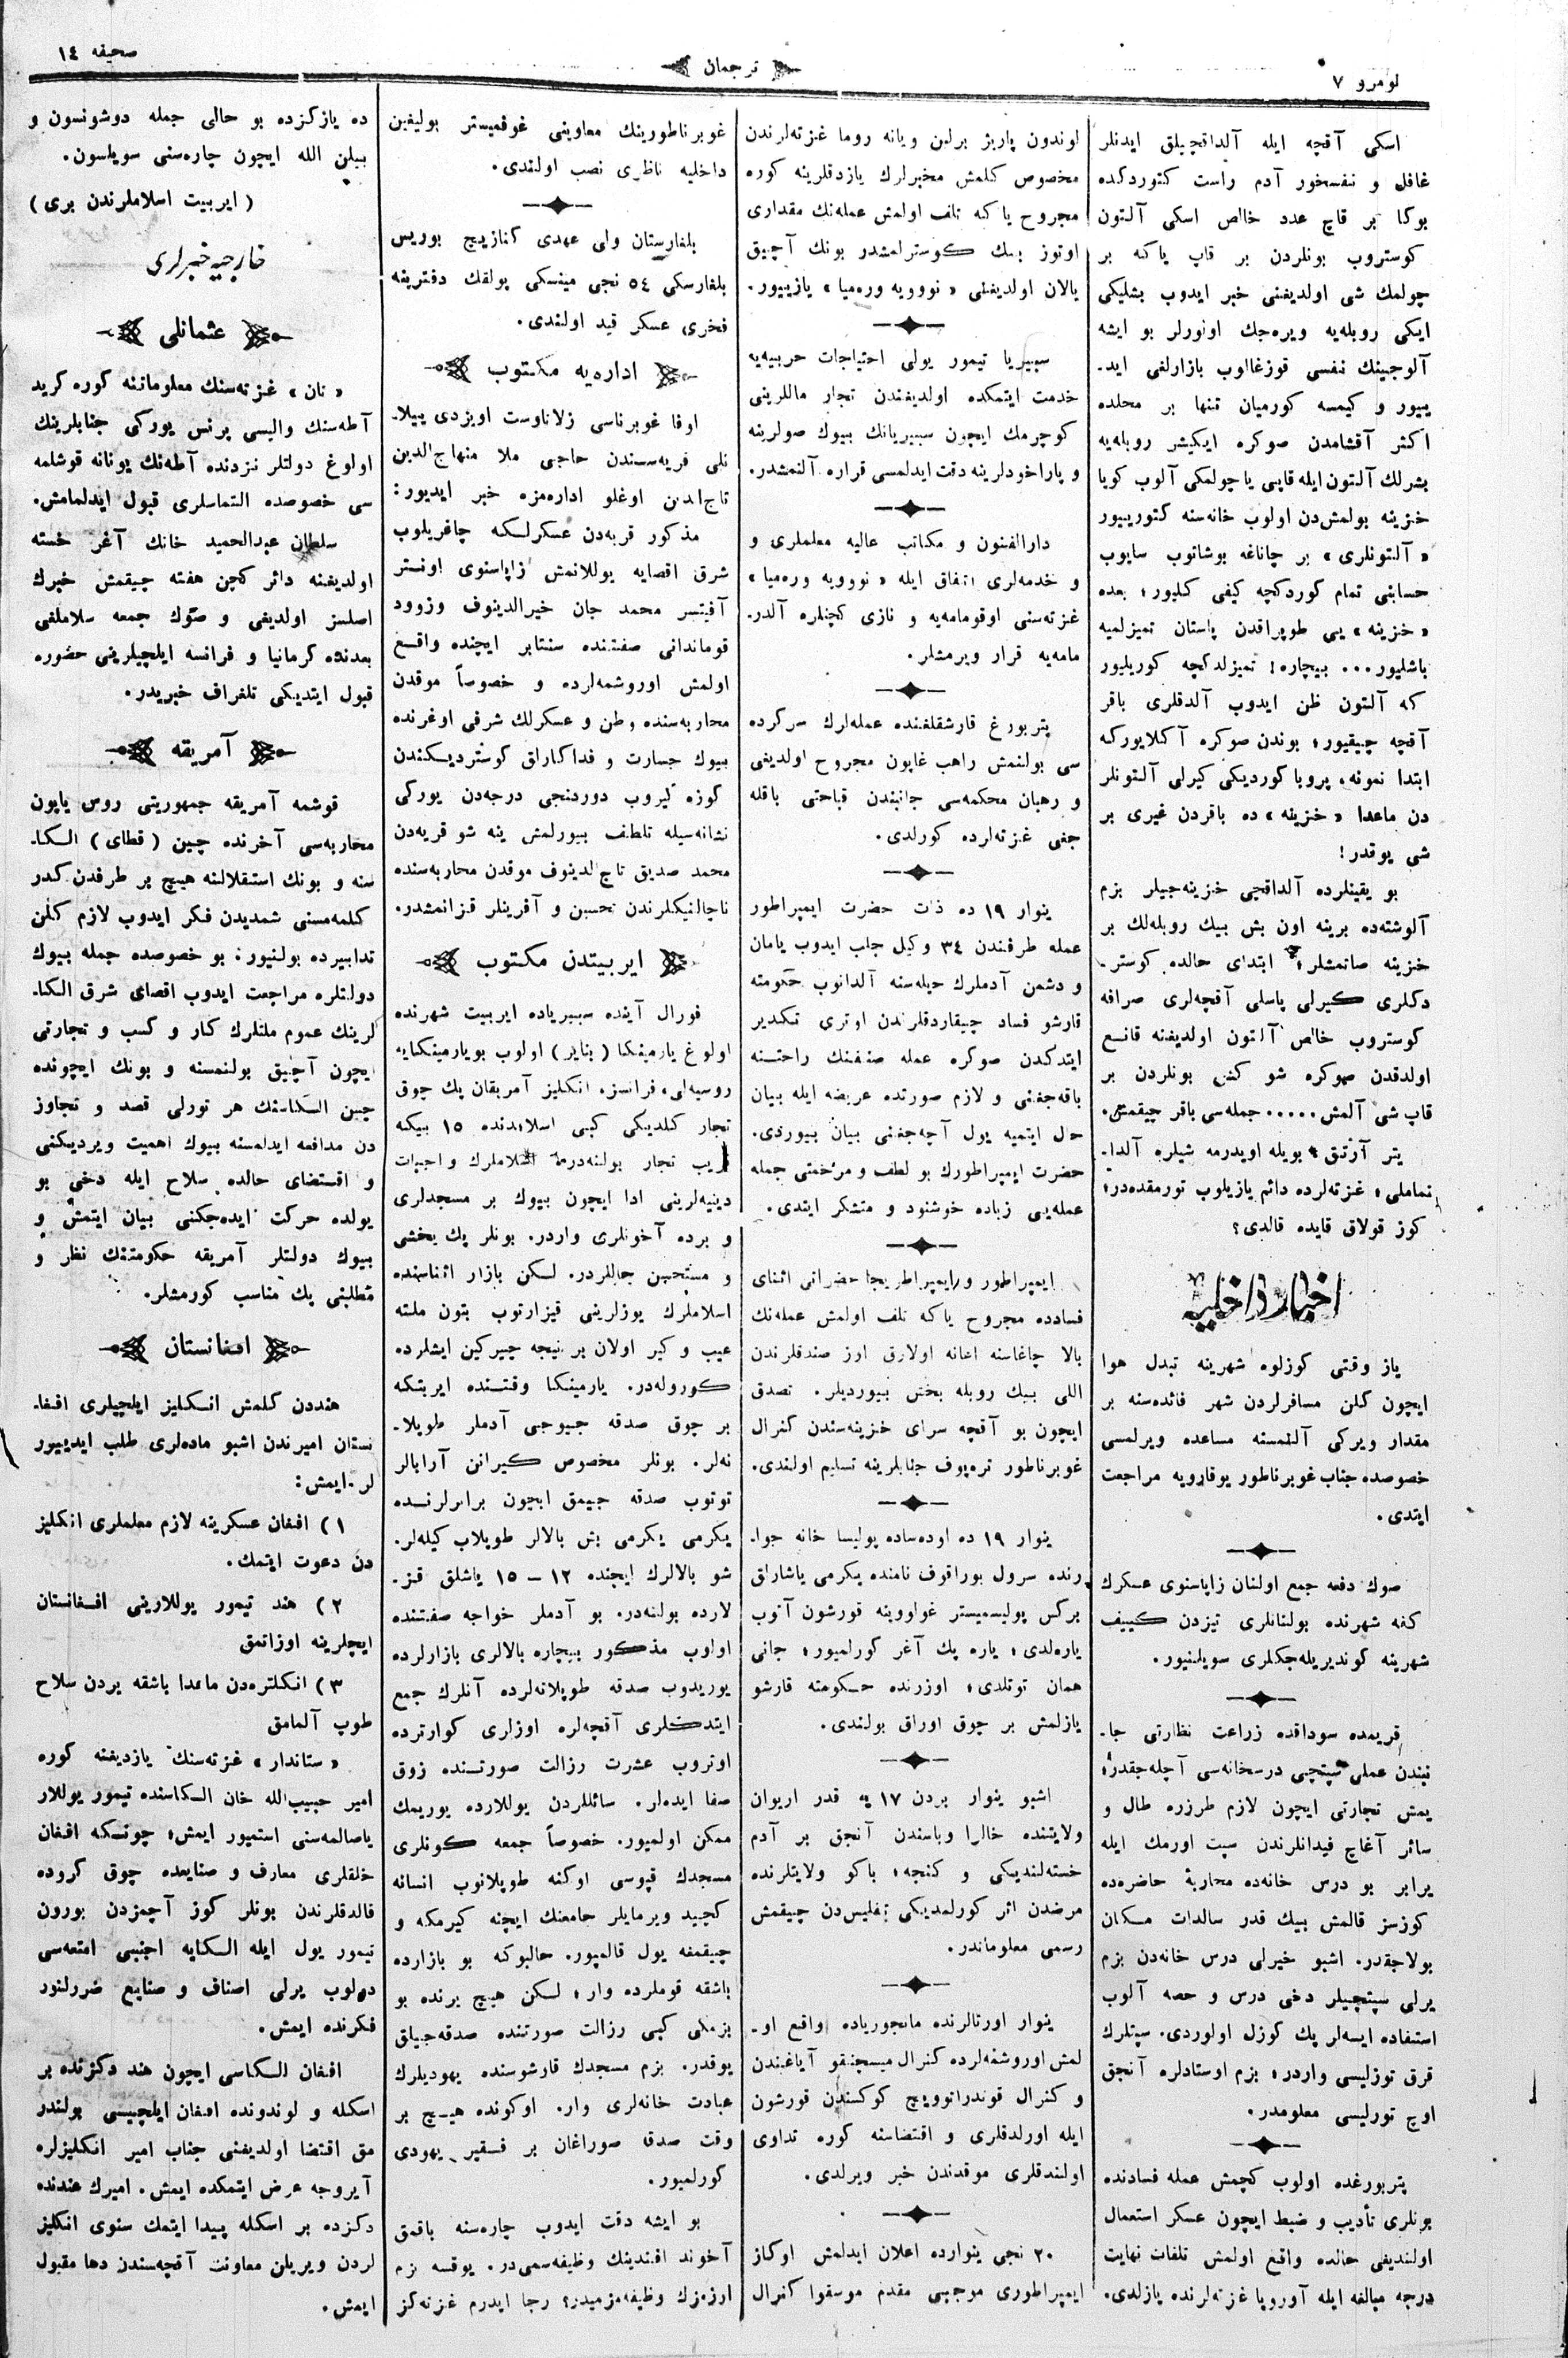 صحیفه ١٤
ترجمان
نومرو ٧
اسکی آقچه ایله آلداقچیلق ایدنلر
غافل و نفسخور آدم راست کتوردکده
بوکا بر قاچ عدد خالص اسکی آلتون
کوستروب بونلردن بر قاپ یاکه بر
چولمك شی اولدیغنی خبر ایدوب بشلیکی
ایکی روبله‌یه ویره‌جك اولنورلر بو ایشه
آلوجینك نفسی قوزغالوب بازارلغی اید‌ـ
ییور و کیمسه کورمیان تنها بر محلده
اکثر آقشامدن صوکره ایکیشر روبله‌یه
بشرلك آلتون ایله قاپی یا چولمکی آلوب کویا
خزینه بولمش‌دن اولوب خانه‌سنه کتورییور
« آلتونلری » بر چاناغه بوشاتوب سایوب
حسابنی تمام کوردکچه کیفی کلیور؛ بعده
« خزینه » یی طوپراقدن پاستان تمیزلمیه
باشلیور... بیچاره! تمیزلدکچه کوریلیور
که آلتون ظن ایدوب آلدقلری باقر
آقچه چیقیور؛ بوندن صوکره آکلایورکه
ابتدا نمونه، پروبا کوردیکی کیرلی آلتونلر
دن ماعدا « خزینه » ده باقردن غیری بر
شی یوقدر!
بو یقینلرده آلداقچی خزینه‌جیلر بزم
آلوشته‌ده برینه اون بش بیك روبله‌لك بر
خزینه صاتمشلر؛ ابتدای حالده کوستر‌ـ
دکلری کیرلی پاسلی آقچه‌لری صرافه
کوستروب خالص آلتون اولدیغنه قانع
اولدقدن صوکره شو کشی بونلردن بر
قاپ شی آلمش ..... جمله‌سی باقر چیقمش.
یتر آرتق بویله اویدرمه شیلره آلدا‌ـ
نماملی؛ غزته‌لرده دائم یازیلوب تورمقده‌در؛
کوز قولاق قایده قالدی؟
اخبار داخلیه
یاز وقتی کوزلوه شهرینه تبدل هوا
ایچون کلن مسافرلردن شهر فائده‌سنه بر
مقدار ویرکی آلنمسنه مساعده ویرلمسی
خصوصده جناب غوبرناطور یوقارویه مراجعت
ایتدی.
صوك دفعه جمع اولنان زاپاسنوی عسکرك
کفه شهرنده بولنانلری تیزدن کییف
شهرینه کوندیریله‌جکلری سویلنیور.
قریمده سوداقده زراعت نظارتی جا‌ـ
نبندن عملی سپتچی درسخانه‌سی آچله‌جقدر؛
یمش تجارتی ایچون لازم طرزده طال و
سائر آغاچ فیدانلرندن سپت اورمك ایله
برابر بو درس خانه‌ده محاربهٔ حاضره‌ده
کوزسز قالمش بیك قدر سالدات مکان
بولاجقدر. اشبو خیرلی درس خانه‌دن بزم
یرلی سپتچیلر دخی درس و حصه آلوب
استفاده ایسه‌لر پك کوزل اولوردی. سپتلرك
قرق تورلیسی واردر؛ بزم اوستادلره آنجق
اوچ تورلیسی معلومدر.
پتربورغده اولوب کچمش عمله فسادنده
بونلری تأدیب و ضبط ایچون عسکر استعمال
اولندیغی حالده واقع اولمش تلفات نهایت
درجه مبالغه ایله آوروپا غزته‌لرنده یازلدی.
لوندون پاریز برلین ویانه روما غزته‌لرندن
مخصوص کلمش مخبرلرك یازدقلرینه کوره
مجروح یاکه تلف اولمش عمله‌نك مقداری
اوتوز بیك کوسترلمشدر بونك آچیق
یالان اولدیغنی « نوویه وره‌میا » یازییور.
سیبیریا تیمور یولی احتیاجات حربیه‌یه
خدمت ایتمکده اولدیغندن تجار ماللرینی
کوچرمك ایچون سیبیریانك بیوك صولرینه
و پاراخودلرینه دقت ایدلمسی قراره آلنمشدر.
دارالفنون و مکاتب عالیه معلملری و
و خدمه‌لری اتفاق ایله « نوویه وره‌میا »
غزته‌سنی اوقومامه‌یه و نازی کچنلره آلدر‌ـ
مامه‌یه قرار ویرمشلر.
پتربورغ قارشقلغنده عمله‌لرك سرکرده
سی بولنمش راهب غاپون مجروح اولدیغی
و رهبان محکمه‌سی جانبندن قباحتی باقله
جغی غزته‌لرده کورلدی.
ینوار ١٩ ده ذات حضرت ایمپراطور
عمله طرفندن ٣٤ وکیل جلب ایدوب یامان
و دشمن آدملرك حیله‌سنه آلدانوب حکومته
قارشو فساد چیقاردقلرندن اوتری تکدیر
ایتدکدن صوکره عمله صنفنك راحتنه
باقه‌جغنی و لازم صورتده عریضه ایله بیان
حال ایتمیه یول آچه‌جغنی بیان بیوردی.
حضرت ایمپراطورك بو لطف و مرحمتی جمله
عمله‌یی زیاده خوشنود و متشکر ایتدی.
ایمپراطور و ایمپراطریجا حضراتی اثنای
فسادده مجروح یاکه تلف اولمش عمله‌نك
بالا چاغاسنه اعانه اولارق اوز صندقلرندن
اللی بیك روبله بخش بیوردیلر. تصدق
ایچون بو آقچه سرای خزینه‌سندن کنرال
غوبرناطور تره‌پوف جنابلرینه تسلیم اولندی.
ینوار ١٩ ده اوده‌ساده پولیسا خانه جوا‌ـ
رنده سرول بوراقوف نامنده یکرمی یاشاراق
برکس پولیسمیستر غولووینه قورشون آتوب
یاره‌لدی؛ یاره پك آغر کورلمیور؛ جانی
همان توتلدی؛ اوزرنده حکومته قارشو
یازلمش بر چوق اوراق بولندی.
اشبو ینوار بردن ١٧ یه قدر اریوان
ولایتنده خالرا وباسندن آنجق بر آدم
خسته‌لندیکی و کنجه؛ باکو ولایتلرنده
مرضدن اثر کورلمدیکی تفلیس‌دن چیقمش
رسمی معلوماتدر.
ینوار اورتالرنده مانجوریاده واقع او‌ـ
لمش اوروشمه‌لرده کنرال میسچنقو آیاغندن
و کنرال قوندراتوویچ کوکسندن قورشون
ایله اورلدقلری و اقتضاسنه کوره تداوی
اولندقلری موقدندن خبر ویرلدی.
٢٠ نجی ینوارده اعلان ایدلمش اوکاز
ایمپراطوری موجبی مقدم موسقوا کنرال
غوبرناطورینك معاوینی غوفمیستر بولیغین
داخلیه ناظری نصب اولندی.
بلغارستان ولی عهدی کنازیچ بوریس
بلغارسکی ٥٤ نجی مینسکی پولقك دفترینه
فخری عسکر قید اولندی.
اداره‌یه مکتوب
اوفا غوبرناسی زلاتاوست اویزدی ییپلا‌ـ
نلی قریه‌سندن حاجی ملا منهاج الدین
تاج‌الدین اوغلو اداره‌مزه خبر ایدیور:
مذکور قریه‌دن عسکرلکه چاقریلوب
شرق اقصایه یوللانمش زاپاسنوی اونتر
آفیتسر محمد جان خیرالدینوف وزوود
قوماندانی صفتنده سنتابر ایچنده واقع
اولمش اوروشمه‌لرده و خصوصاً موقدن
محاربه‌سنده وطن و عسکرلك شرفی اوغرنده
بیوك جسارت و فداکاراق کوستردیکندن
کوزه کیروب دوردنجی درجه‌دن یورکی
نشانه‌سیله تلطف بیورلمش ینه شو قریه‌دن
محمد صدیق تاج‌الدینوف موقدن محاربه‌سنده
ناچالنیکلرندن تحسین و آفرینلر قزانمشدر.
ایربیتدن مکتوب
فورال آینده سیبیریاده ایربیت شهرنده
اولوغ یارمینکا ( پنایر ) اولوب بو یارمینکایه
روسیه‌لی، فرانسز، انکلیز آمریقان پك چوق
تجار کلدیکی کبی اسلامدنده ١٥ بیکه
قریب تجار بولنه‌در. اسلاملرك واجبات
دینیه‌لرینی ادا ایچون بیوك بر مسجدلری
و برده آخونلری واردر. بونلر پك یخشی
و مستحسن حاللردر. لکن بازار اثناسنده
اسلاملرك یوزلرینی قیزارتوب بتون ملته
عیب و کیر اولان بر نیجه چیرکین ایشلرده
کوروله‌در. یارمینکا وقتنده ایربتکه
بر چوق صدقه جیوجی آدملر طوپلا‌ـ
نه‌لر. بونلر مخصوص کیرانن آرابالر
توتوب صدقه جیمق ایچون برابرلرنده
یکرمی یکرمی بش بالالر طوپلاب کیله‌لر.
شو بالالرك ایچنده ١٢ – ١٥ یاشلق قز‌ـ
لارده بولنه‌در. بو آدملر خواجه صفتنده
اولوب مذکور بیچاره بالالری بازارلرده
یوریدوب صدقه طوپلاته‌لرده آنلرك جمع
ایتدکلری آقچه‌لره اوزلری کوارترده
اوتروب عشرت رزالت صورتنده زوق
صفا ایده‌لر. سائللردن یوللارده یوریمك
ممکن اولمیور. خصوصاً جمعه کونلری
مسجدك قپوسی اوکنه طوپلانوب انسانه
کچید ویرمایلر جامعنك ایچنه کیرمکه و
چیقمغه یول قالمیور. حالبوکه بو بازارده
باشقه قوملرده وار؛ لکن هیچ برنده بو
بزمکی کبی رزالت صورتنده صدقه‌جیاق
یوقدر. بزم مسجدك قارشوسنده یهودیلرك
عبادت خانه‌لری وار. اوکونده هیچ بر
وقت صدقه صوراغان بر فقیر یهودی
کورلمیور.
بو ایشه دقت ایدوب چاره‌سنه باقمق
آخوند افندینك وظیفه‌سمی‌در. یوقسه بزم
ارزمزك وظیفه‌مزمیدر؟ رجا ایدرم غزته‌کز
ده یازکزده بو حالی جمله دوشونسون و
بیلن الله ایچون چاره‌سنی سویلسون.
( ایربیت اسلاملرندن بری )
خارجیه خبرلری
عثمانلی
« تان » غزته‌سنك معلوماتنه کوره کرید
آطه‌سنك والیسی پرنس یورکی جنابلرینك
اولوغ دولتلر نزدنده آطه‌نك یونانه قوشلمه
سی خصوصده التماسلری قبول ایدلمامش.
سلطان عبدالحمید خانك آغر خسته
اولدیغنه دائر کچن هفته چیقمش خبرك
اصلسز اولدیغی و صوك جمعه سلاملغی
بعدنده کرمانیا و فرانسه ایلچیلرینی حضوره
قبول ایتدیکی تلغراف خبریدر.
آمریقه
قوشمه آمریقه جمهوریتی روس یاپون
محاربه‌سی آخرنده چین ( قطای ) الکا‌ـ
سنه و بونك استقلالنه هیچ بر طرفدن کدر
کلمه‌مسنی شمدیدن فکر ایدوب لازم کلن
تدابیرده بولنیور: بو خصوصده جمله بیوك
دولتلره مراجعت ایدوب اقصای شرق الکا‌ـ
لرینك عموم ملتلرك کار و کسب و تجارتی
ایچون آچیق بولنمسنه و بونك ایچونده
چین الکاسنك هر تورلی قصد و تجاوز
دن مدافعه ایدلمسنه بیوك اهمیت ویردیکنی
و اقتضای حالده سلاح ایله دخی بو
یولده حرکت ایده‌جکنی بیان ایتمش و
بیوك دولتلر آمریقه حکومتنك نظر و
مطلبنی پك مناسب کورمشلر.
افغانستان
هنددن کلمش انکلیز ایلچیلری افغا‌ـ
نستان امیرندن اشبو ماده‌لری طلب ایدییور
لر ایمش:
١ ) افغان عسکرینه لازم معلملری انکلیز
دن دعوت ایتمك.
٢ ) هند تیمور یوللارینی افغانستان
ایچلرینه اوزاتمق
٣ ) انکلتره‌دن ماعدا باشقه یردن سلاح
طوپ آلمامق
« ستاندار » غزته‌سنك یازدیغنه کوره
امیر حبیب‌الله خان الکاسنده تیمور یوللار
یاصالمه‌سنی استمیور ایمش؛ چونکه افغان
خلقلری معارف و صنایعده چوق کروده
قالدقلرندن بونلر کوز آچمزدن بورون
تیمور یول ایله الکایه اجنبی امتعه‌سی
دولوب یرلی اصناف و صنایع ضررلنور
فکرنده ایمش.
افغان الکاسی ایچون هند دکزنده بر
اسکله و لوندونده افغان ایلچیسی بولندر
مق اقتضا اولدیغنی جناب امیر انکلیزلره
آیروجه عرض ایتمکده ایمش. امیرك عندنده
دکزده بر اسکله پیدا ایتمك سنوی انکلیز
لردن ویریلن معاونت آقچه‌سندن دها مقبول
ایمش.